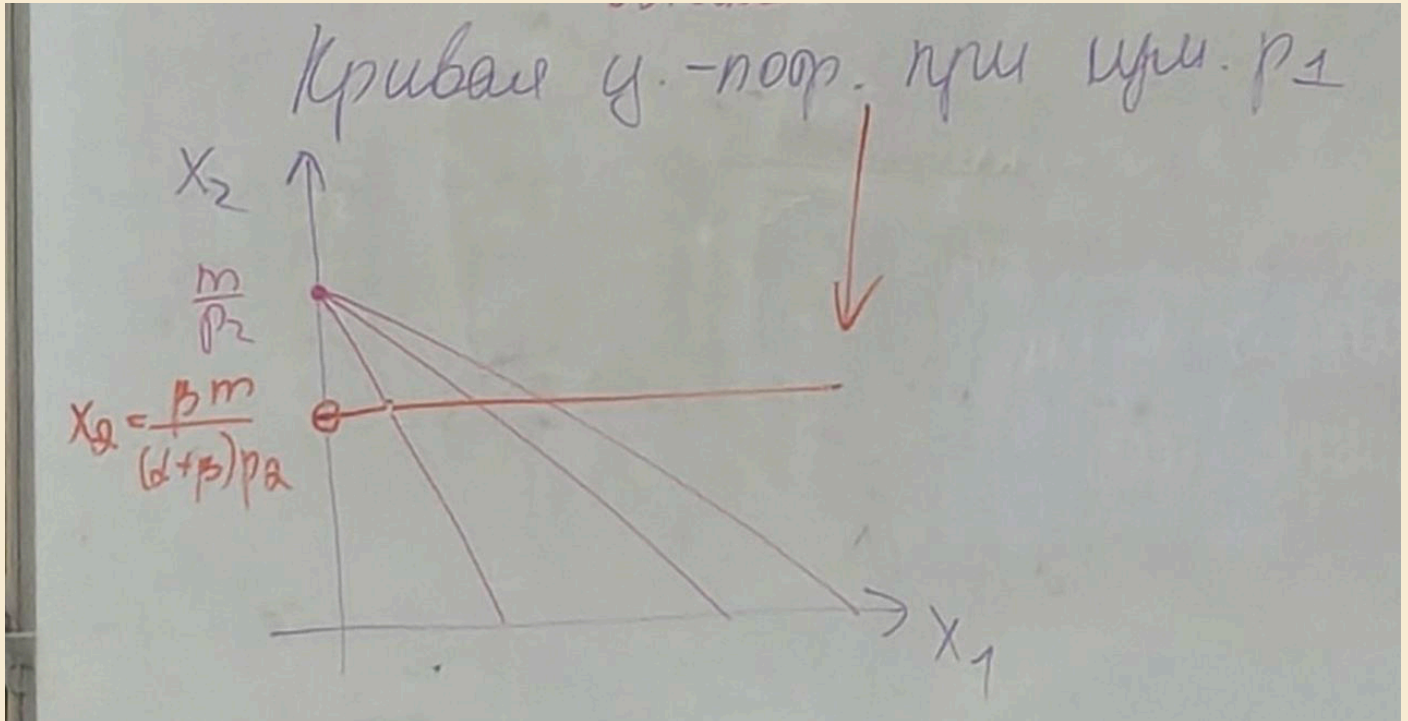 Кривая ц.-потр. при изм. p1
X2
m/p2
x2 = βm/((α+β)p2)
X1